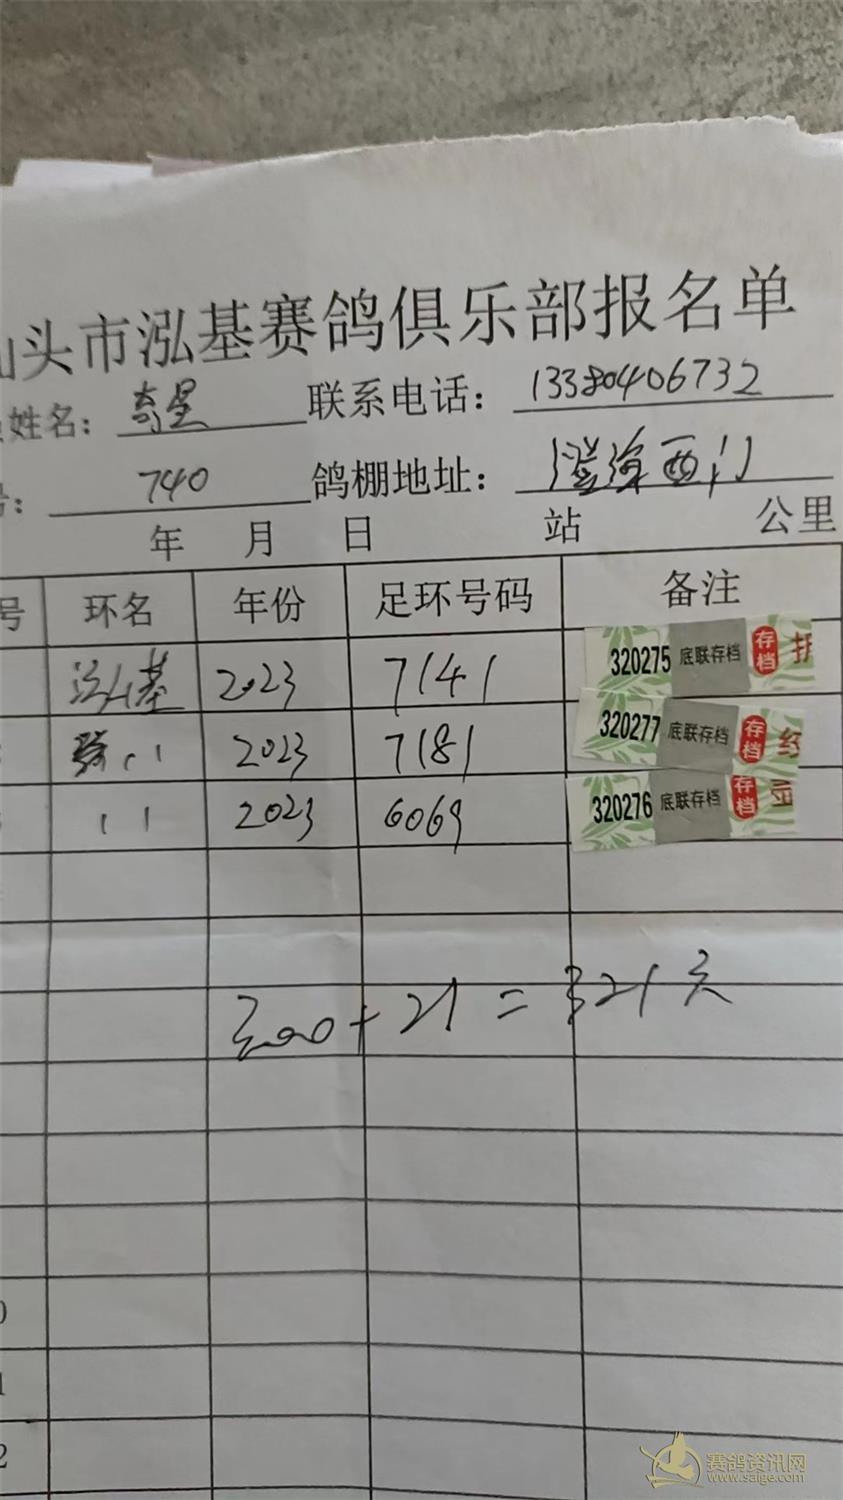 汕头市泓基赛鸽俱乐部报名单
姓名: 奇星 联系电话: 13380406732
号: 740 鸽棚地址: 澄海西门
年 月 日 站 公里
号 环名 年份 足环号码 备注
泓基 2023 7141 320275 底联存档 存档
2023 7181 320277 底联存档 存档
11 2023 6069 320276 底联存档 存档
300+21=321元
0
1
2
赛鸽资讯网
www.saige.com